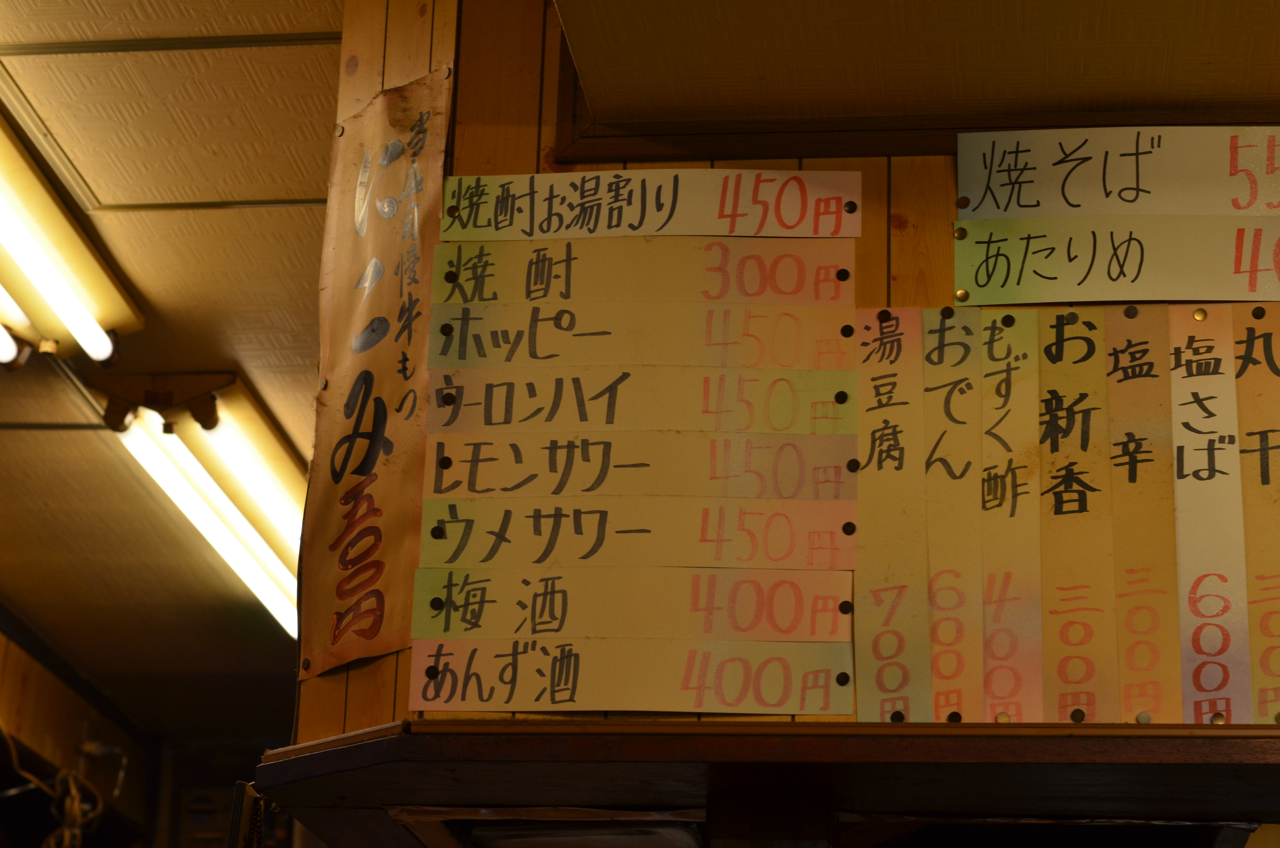 自慢牛もつ
にこみ 五〇〇円
焼酎お湯割り 450円
焼酎 300円
ホッピー 450円
ウーロンハイ 450円
レモンサワー 450円
ウメサワー 450円
梅酒 400円
あんず酒 400円
焼そば 55
あたりめ 40
湯豆腐 七〇〇円
おでん 六〇〇円
もずく酢 四〇〇円
お新香 三〇〇円
塩辛 三〇〇円
塩さば 600円
丸干 三〇〇円